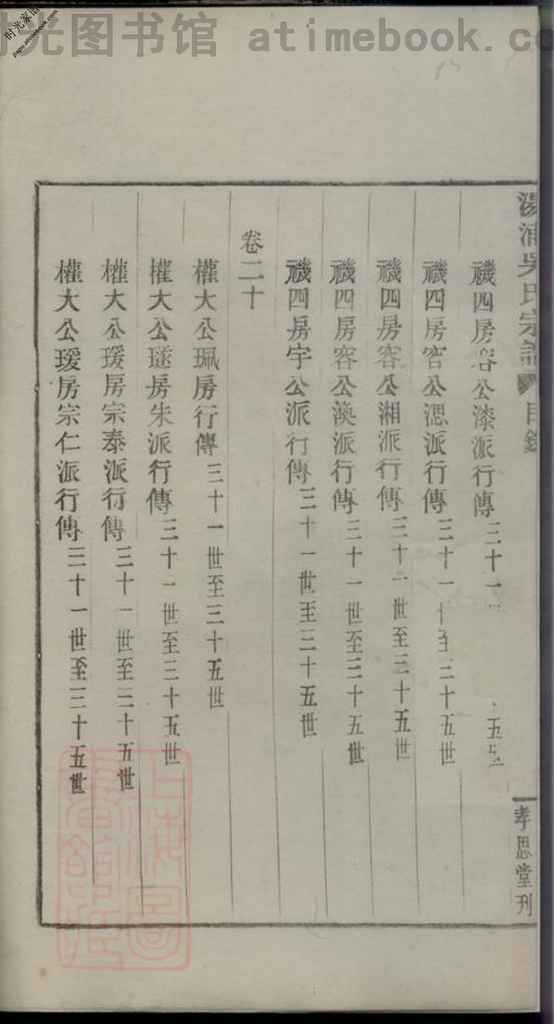 时光图书馆 atimebook.com
时光家谱
湯浦吳氏宗譜 目錄
禨四房容公漆派行傳 三十一 五世
禨四房容公浥派行傳 三十一世至三十五世
禨四房容公湘派行傳 三十一世至三十五世
禨四房容公渙派行傳 三十一世至三十五世
禨四房宇公派行傳 三十一世至三十五世
卷二十
權大公珮房行傳 三十一世至三十五世
權大公璲房朱派行傳 三十一世至三十五世
權大公瑗房宗泰派行傳 三十一世至三十五世
權大公瑗房宗仁派行傳 三十一世至三十五世
孝思堂刊
上海圖書館藏